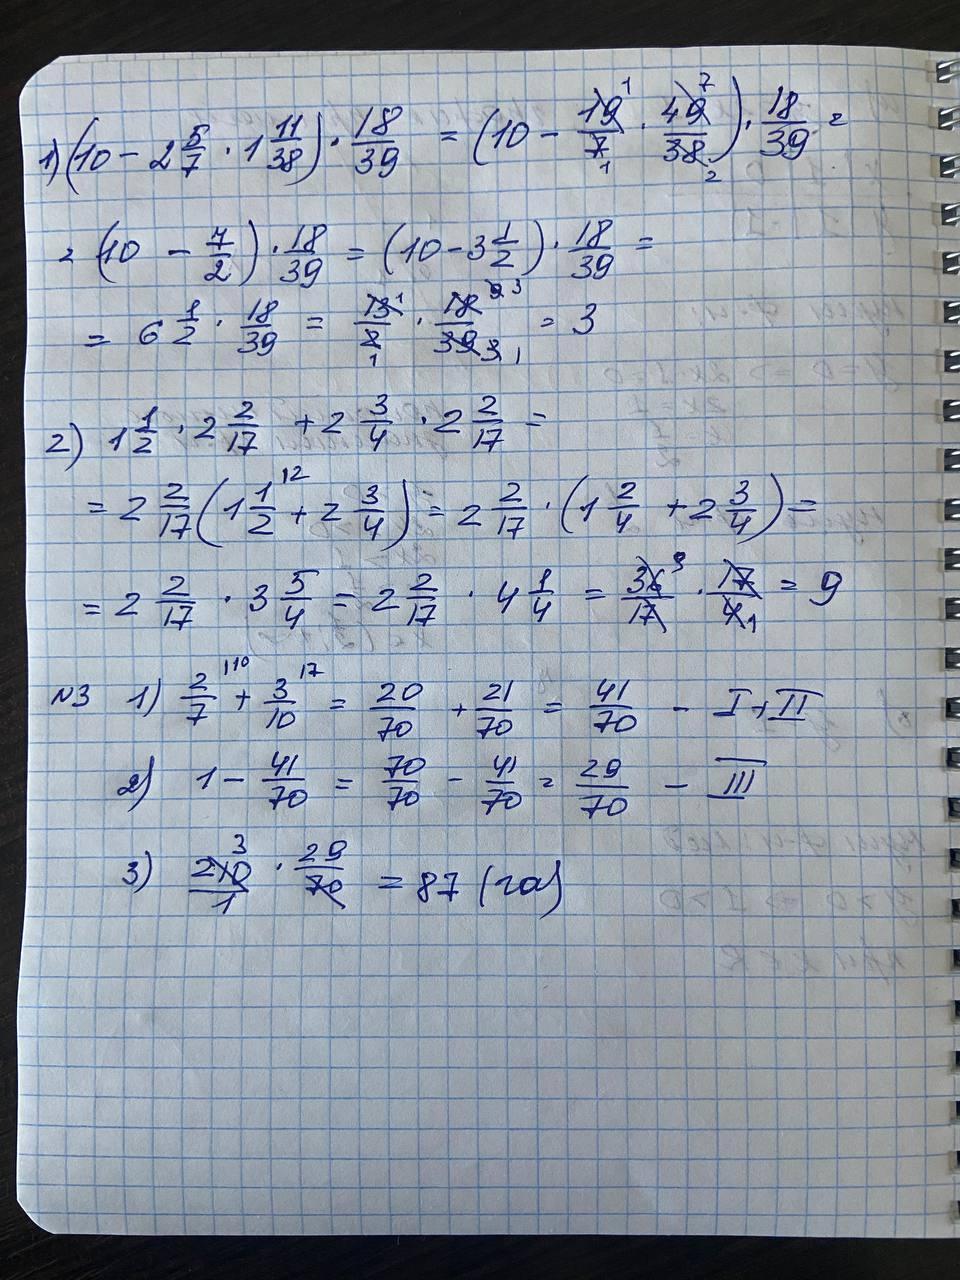 1) (10 - 2 5/7 · 1 11/38) · 18/39 = (10 - 19/7 · 49/38) · 18/39 =
= (10 - 7/2) · 18/39 = (10 - 3 1/2) · 18/39 =
= 6 1/2 · 18/39 = 13/2 · 18/39 = 3
2) 1 1/2 · 2 2/17 + 2 3/4 · 2 2/17 =
= 2 2/17 (1 1/2 + 2 3/4) = 2 2/17 · (1 2/4 + 2 3/4) =
= 2 2/17 · 3 5/4 = 2 2/17 · 4 1/4 = 36/17 · 17/4 = 9
№3 1) 2/7 + 3/10 = 20/70 + 21/70 = 41/70 - I + II
2) 1 - 41/70 = 70/70 - 41/70 = 29/70 - III
3) 210/1 · 29/70 = 87 (га)